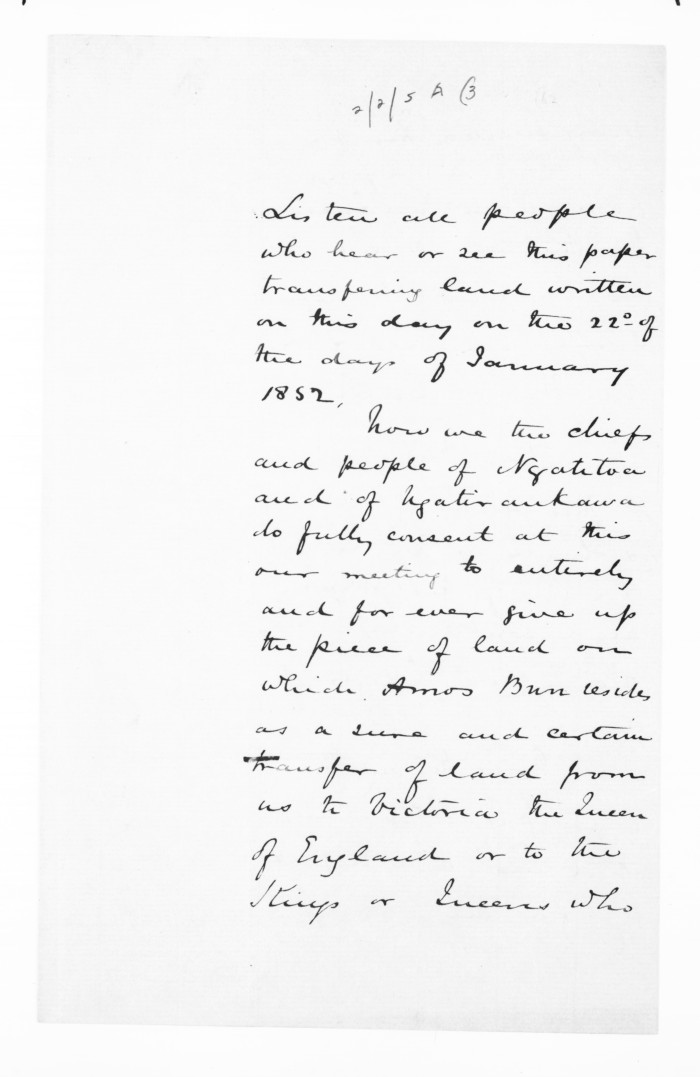 2/2/5 A (3
Listen all people
who hear or see this paper
transfering land written
on this day on the 22º of
the days of January
1852,
Now we the chiefs
and people of Ngatitoa
and of Ngatiraukawa
do fully consent at this
our meeting to entirely
and for ever give up
the piece of land on
which Amos Burr resides
as a sure and certain
transfer of land from
us to Victoria the Queen
of England or to the
Kings or Queens who